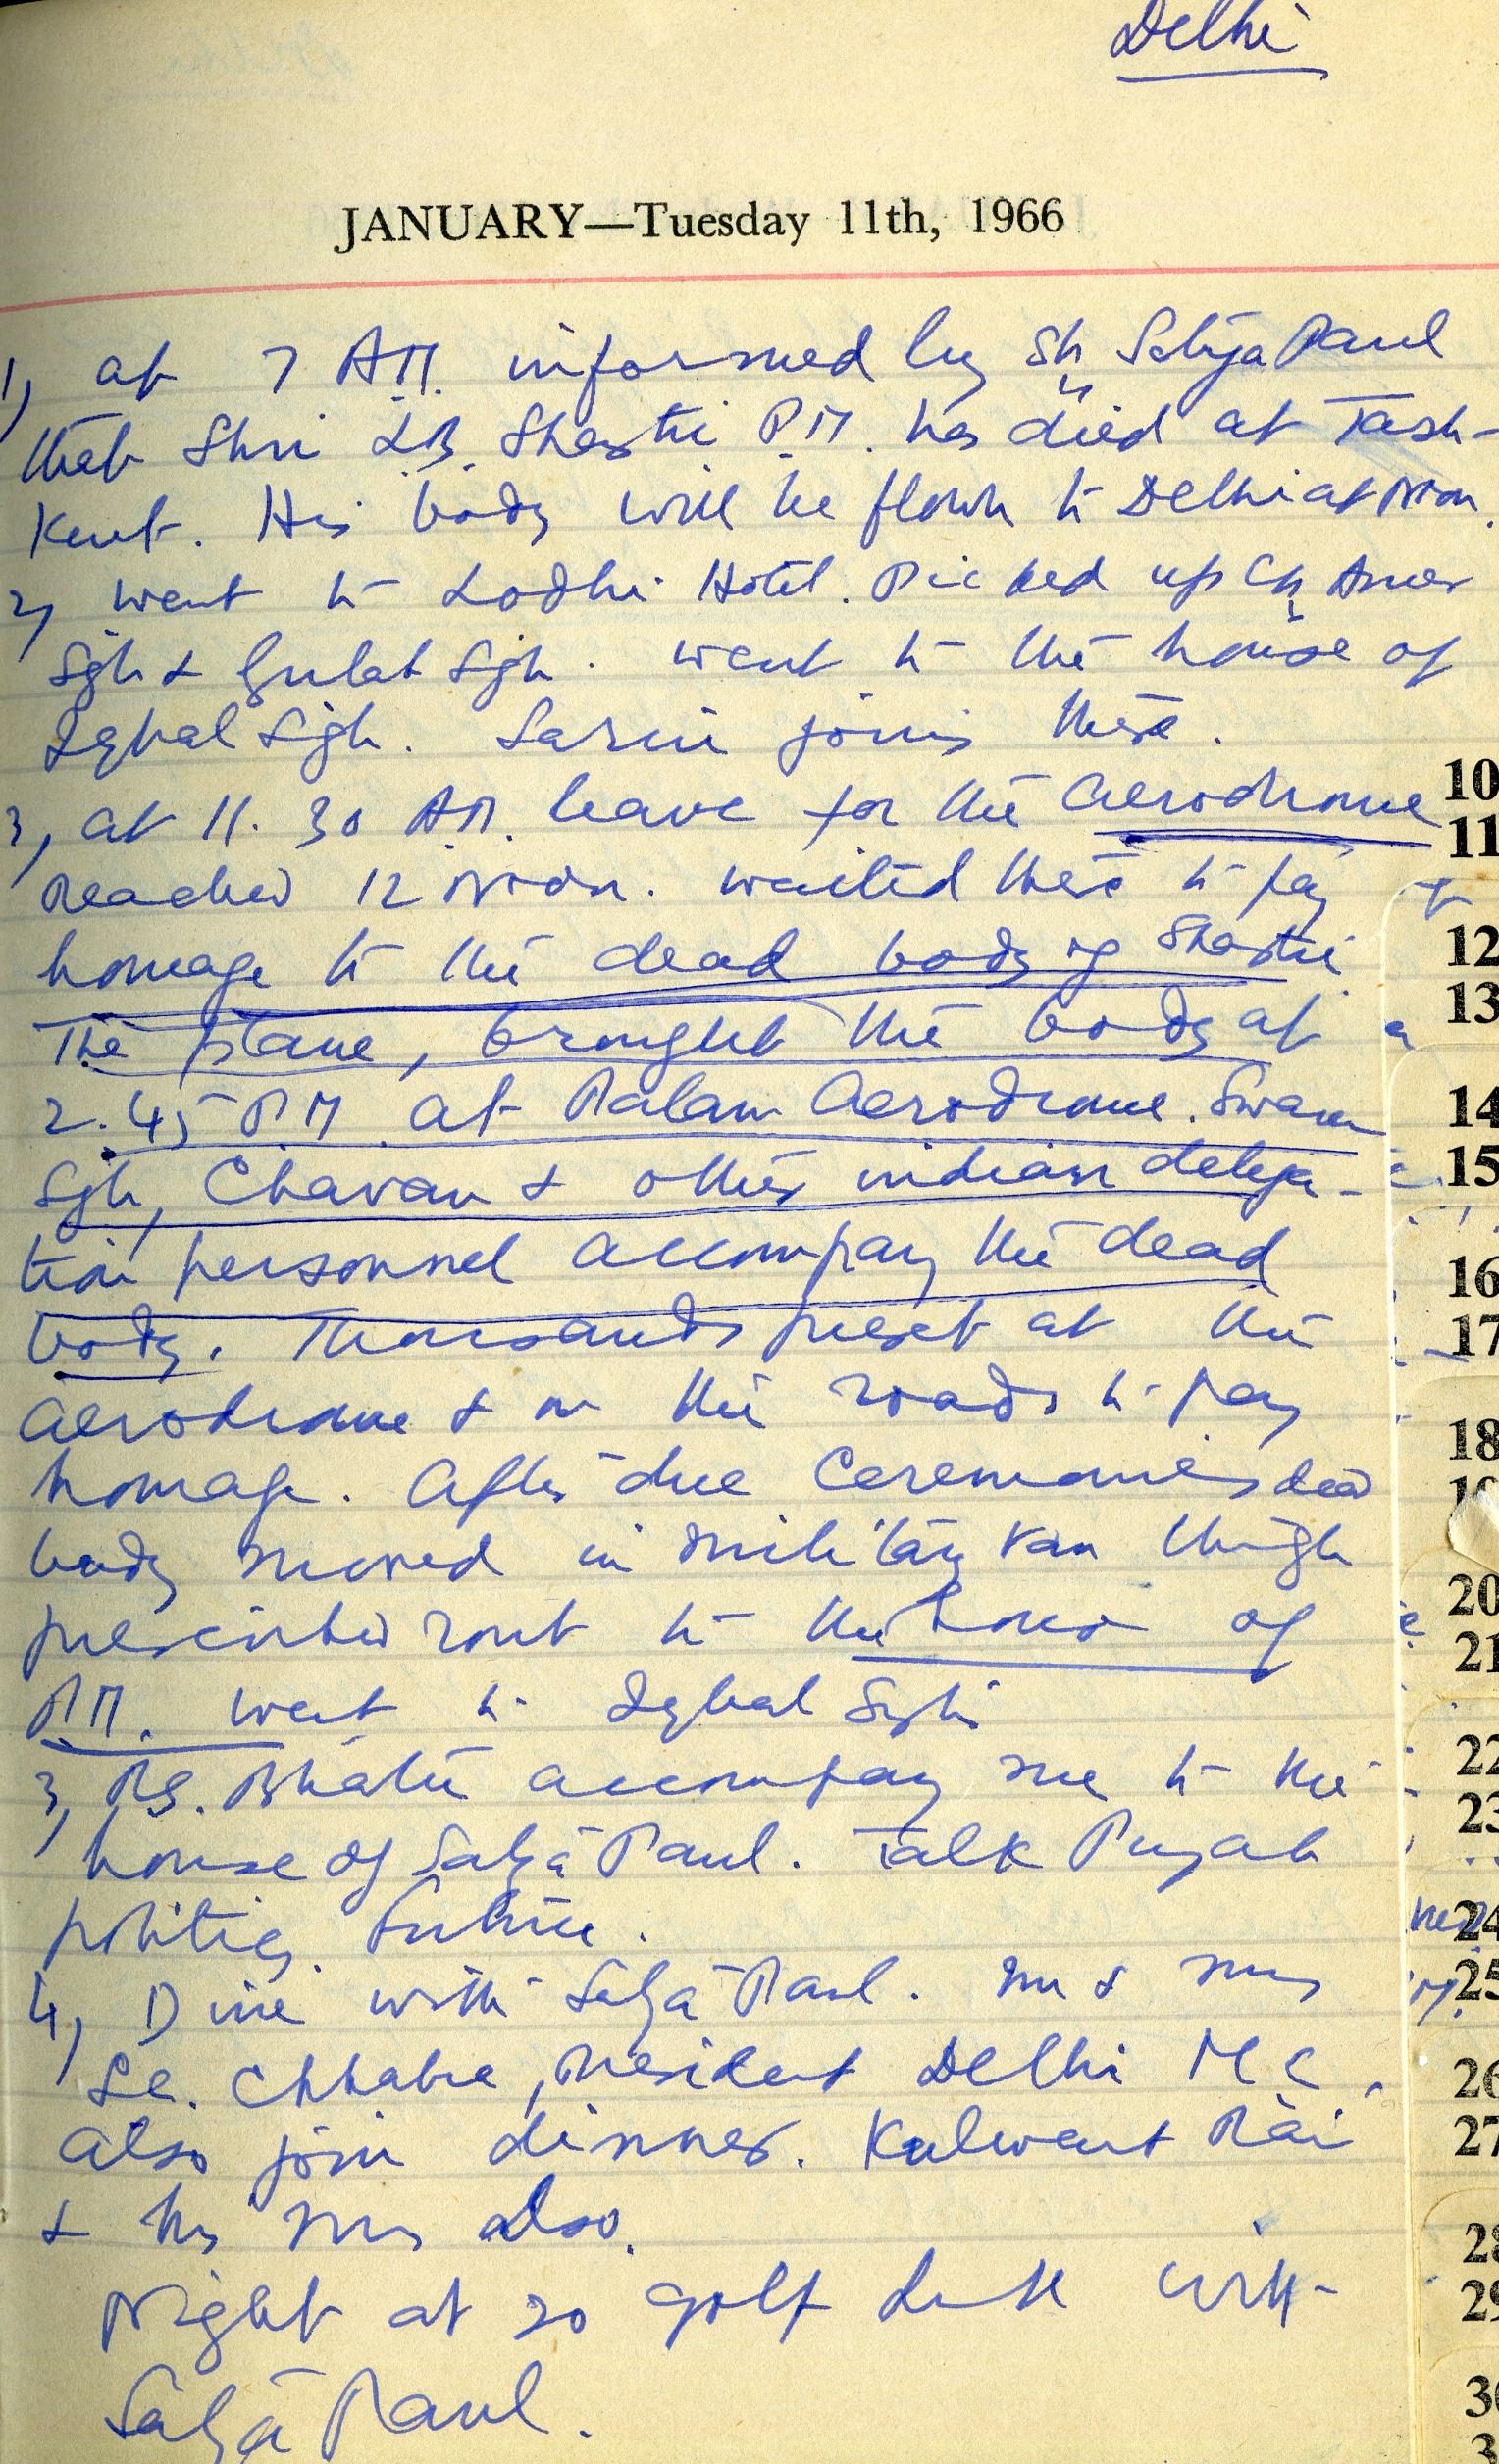 Delhi
JANUARY—Tuesday 11th, 1966
1, at 7 AM. informed by Sh Satya Paul
that Shri L.B. Shastri P.M. has died at Tash-
Kent. His body will be flown to Delhi at Noon.
2, went to Lodhi Hotel. Picked up Ch Amar
Sgh & Gulab Sgh. went to the house of
Iqbal Sigh. Sarin joins there.
3, at 11.30 AM. leave for the aerodrome
Reached 12 Noon. waited there to pay
homage to the dead body of Shastri
The plane, brought the body at
2.45 P.M. at Palam Aerodrome. Swaran
Sgh, Chavan & other indian delega-
tion personnel accompany the dead
body. Thousands preset at the
aerodrome & on the roads to pay
homage. After due Ceremonies dead
body moved in military van through
prescribed rout to the house of
P.M. went to Iqbal Sigh
3, RS. Bhatti accompany me to the
house of Satya Paul. Talk Punjab
politics future.
4, Dine with Satya Paul. Mr & Mrs
Chhabra, President Delhi M C.
also join dinner. Kulwant Rai
& his Mrs also.
Night at 20 golf link with
Satya Paul.
10
11
12
13
14
15
16
17
18
20
21
22
23
24
25
26
27
28
29